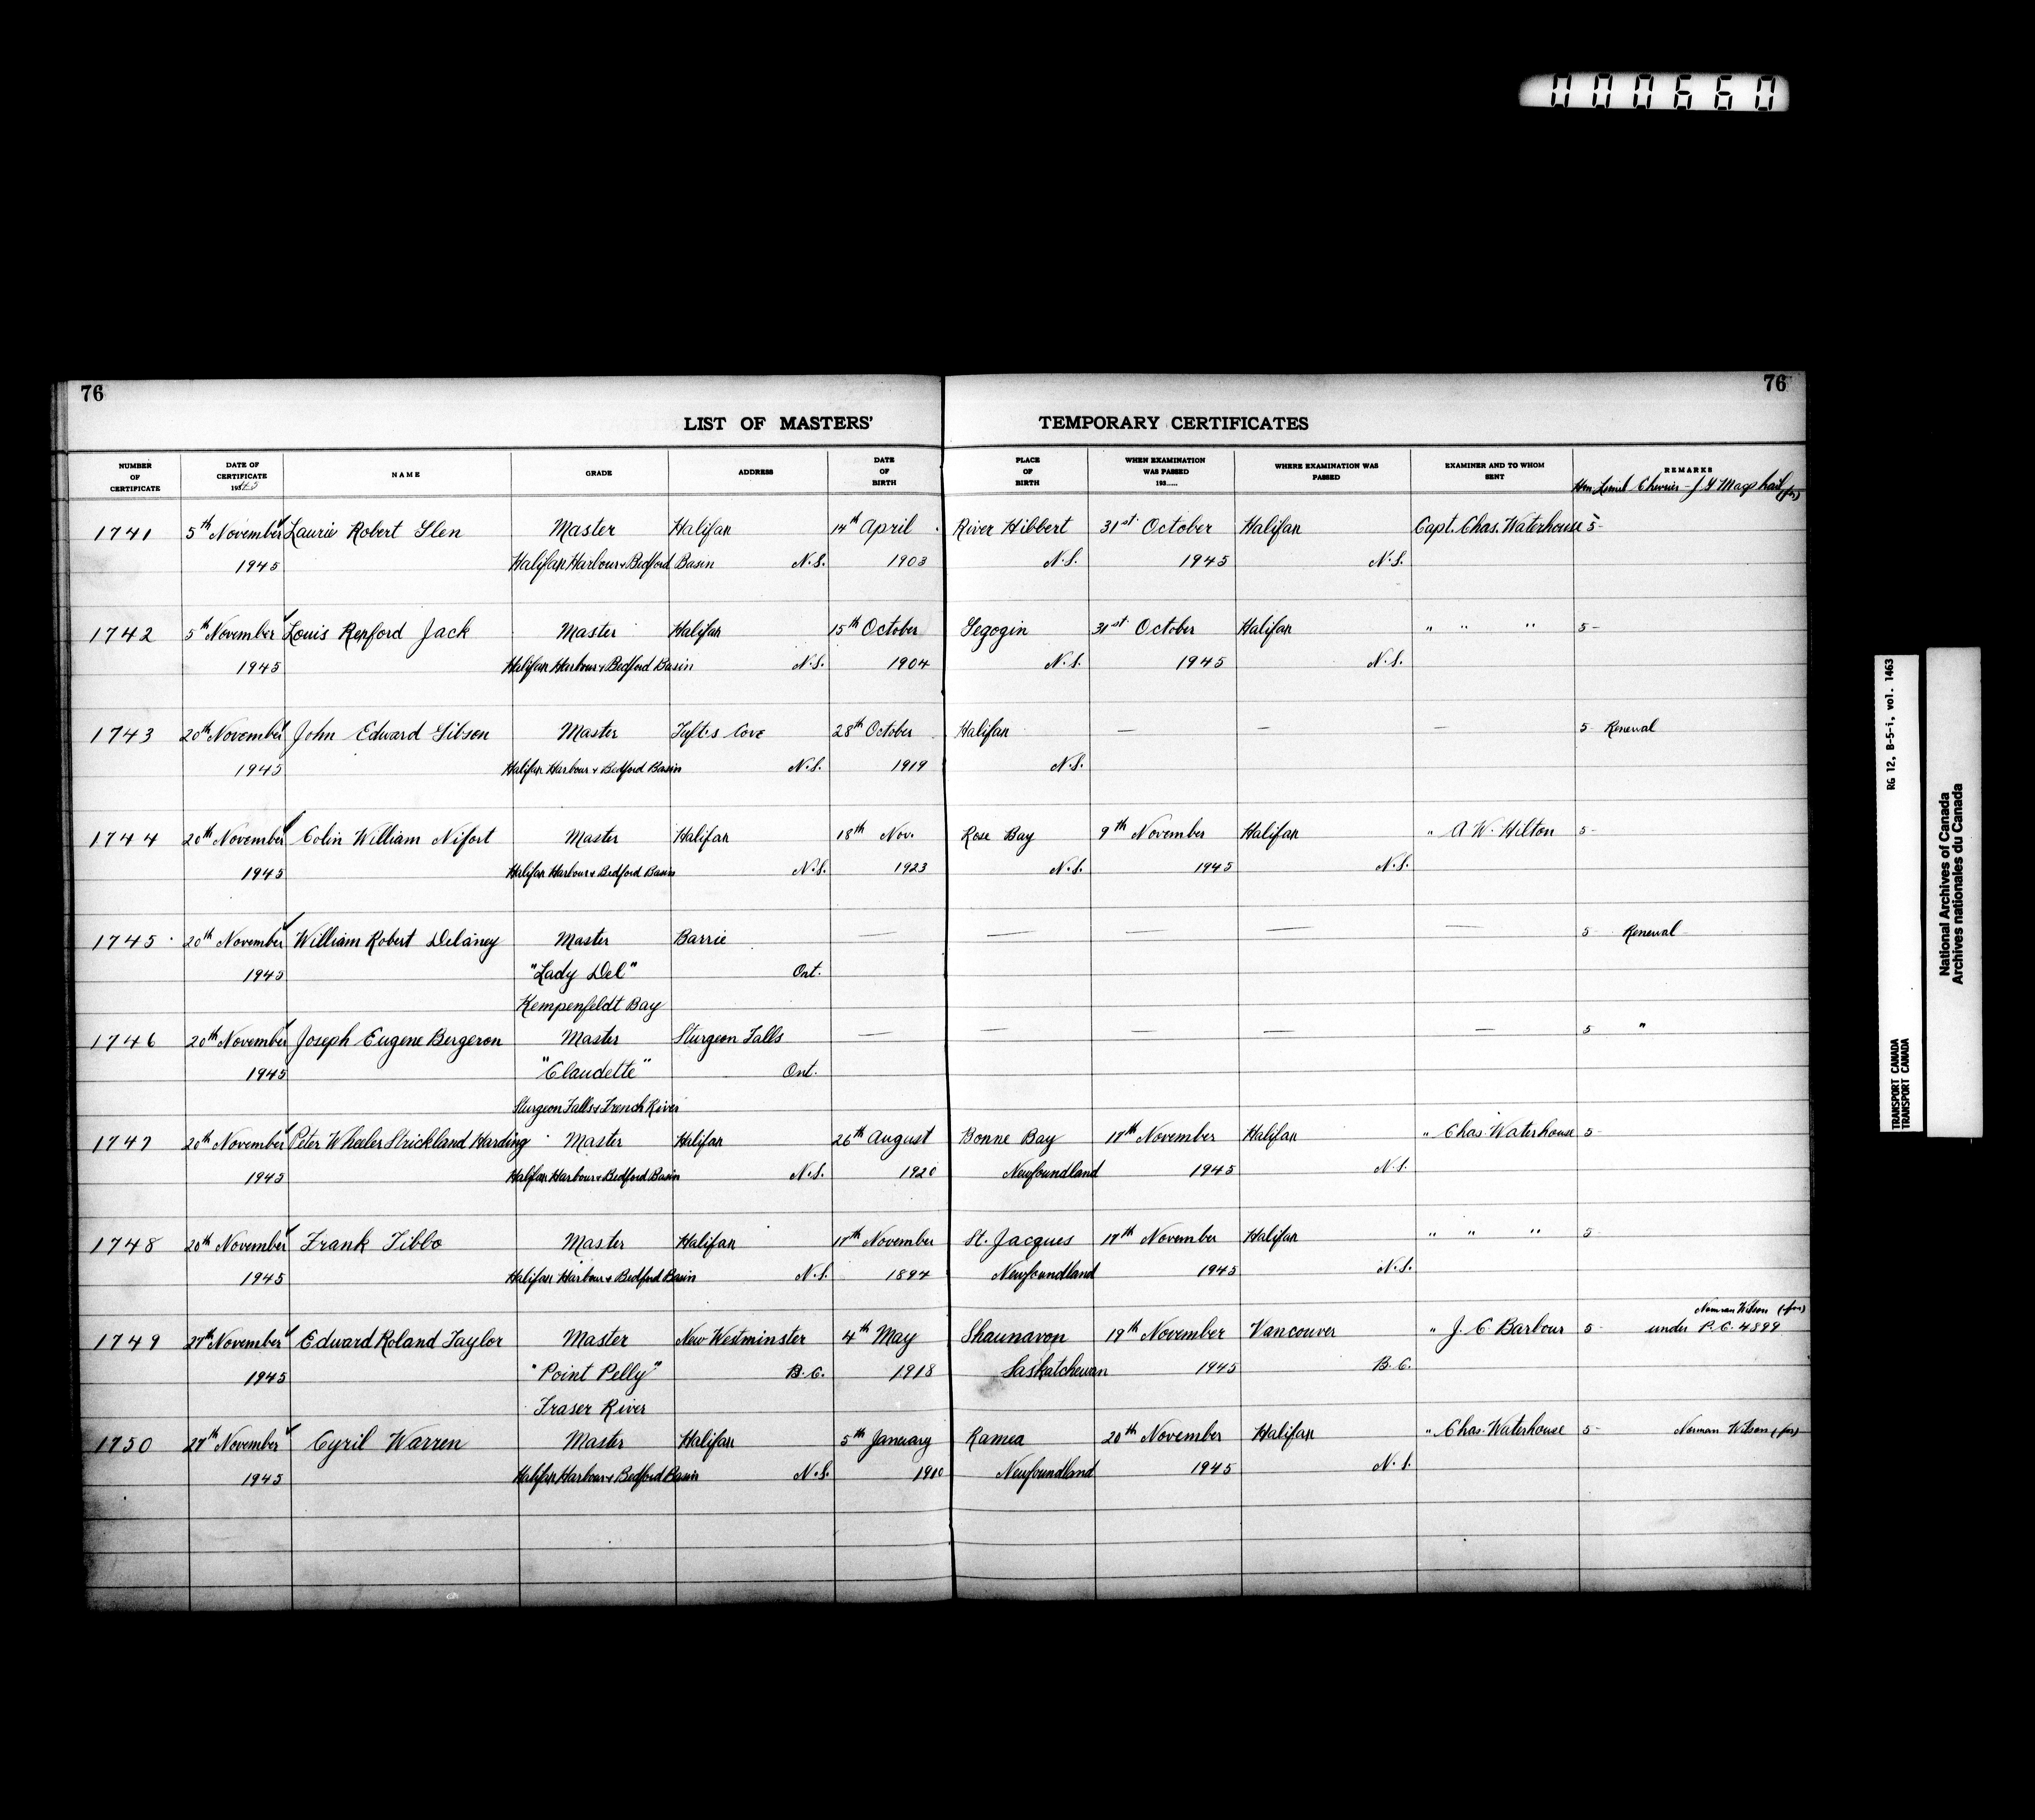 000660
76
76
LIST OF MASTERS' TEMPORARY CERTIFICATES
NUMBER OF CERTIFICATE
DATE OF CERTIFICATE 1945
NAME
GRADE
ADDRESS
DATE OF BIRTH
PLACE OF BIRTH
WHEN EXAMINATION WAS PASSED 193.....
WHERE EXAMINATION WAS PASSED
EXAMINER AND TO WHOM SENT
REMARKS
Hon. Lionel Chevrier - J (for)
1741 5th November Laurie Robert Glen Master Halifax 14th April River Hibbert 31st October Halifax Capt. Chas. Waterhouse 5-
1945 Halifax Harbour & Bedford Basin N.S. 1903 N.S. 1945 N.S.
1742 5th November Louis Jack Master Halifax 15th October 31st October Halifax " " " 5-
1945 Halifax Harbour & Bedford Basin N.S. 1904 N.S. 1945 N.S.
1743 20th November John Edward Gibson Master Tufts Cove 28th October Halifax — — — 5- Renewal
1945 Halifax Harbour & Bedford Basin N.S. 1919 N.S.
1744 20th November Colin William Nifort Master Halifax 18th Nov. Rose Bay 9th November Halifax " A W. Hilton 5-
1945 Halifax Harbour & Bedford Basin N.S. 1923 N.S. 1945 N.S.
1745 20th November William Robert Delaney Master Barrie — — — — — 5- Renewal
1945 "Lady Del" Ont.
Kempenfeldt Bay
1746 20th November Joseph Eugene Bergeron Master Sturgeon Falls — — — — — 5 "
1945 "Claudette" Ont.
Sturgeon Falls & French River
1747 20th November Peter Wheeler Strickland Harding Master Halifax 26th August Bonne Bay 17th November Halifax " Chas Waterhouse 5-
1945 Halifax Harbour & Bedford Basin N.S. 1920 Newfoundland 1945 N.S.
1748 20th November Frank Tibbo Master Halifax 17th November St. Jacques 17th November Halifax " " " 5
1945 Halifax Harbour & Bedford Basin N.S. 1894 Newfoundland 1945 N.S.
Norman Wilson (for)
1749 27th November Edward Roland Taylor Master New Westminster 4th May Shaunavon 19th November Vancouver " J. C. Barbour 5- under P.C. 4899
1945 "Point Pelly" B.C. 1918 Saskatchewan 1945 B.C.
Fraser River
1750 27th November Cyril Warren Master Halifax 5th January Ramea 20th November Halifax " Chas. Waterhouse 5- Norman Wilson (for)
1945 Halifax Harbour & Bedford Basin N.S. 1910 Newfoundland 1945 N.S.
RG 12, B-5-i, vol. 1463
TRANSPORT CANADA
TRANSPORT CANADA
National Archives of Canada
Archives nationales du Canada